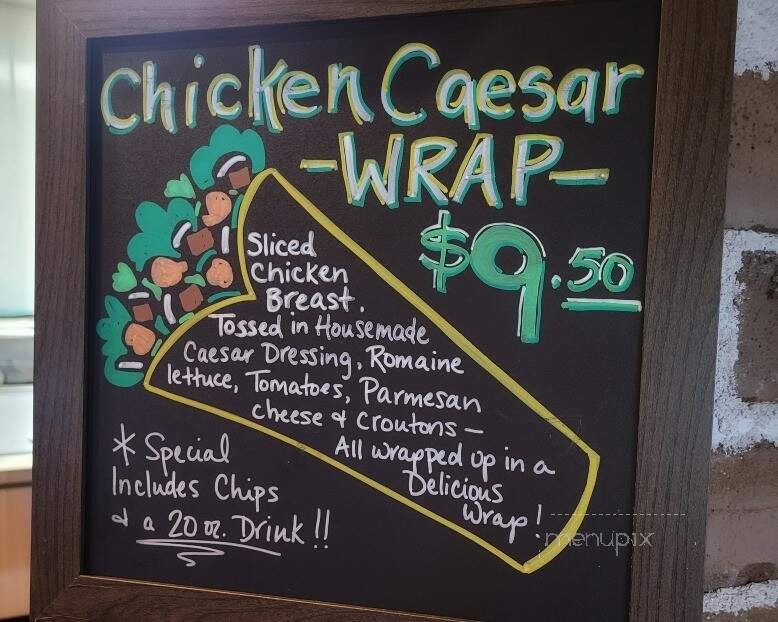 Chicken Caesar
-WRAP-
$9.50
Sliced
Chicken
Breast.
Tossed in Housemade
Caesar Dressing, Romaine
lettuce, Tomatoes, Parmesan
cheese & Croutons —
All wrapped up in a
Delicious
Wrap!
* Special
Includes Chips
& a 20 oz. Drink!!
menupix